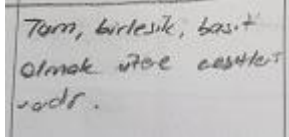 Tam, birlesik, basit
olmak üzere cesitleri
vardır.